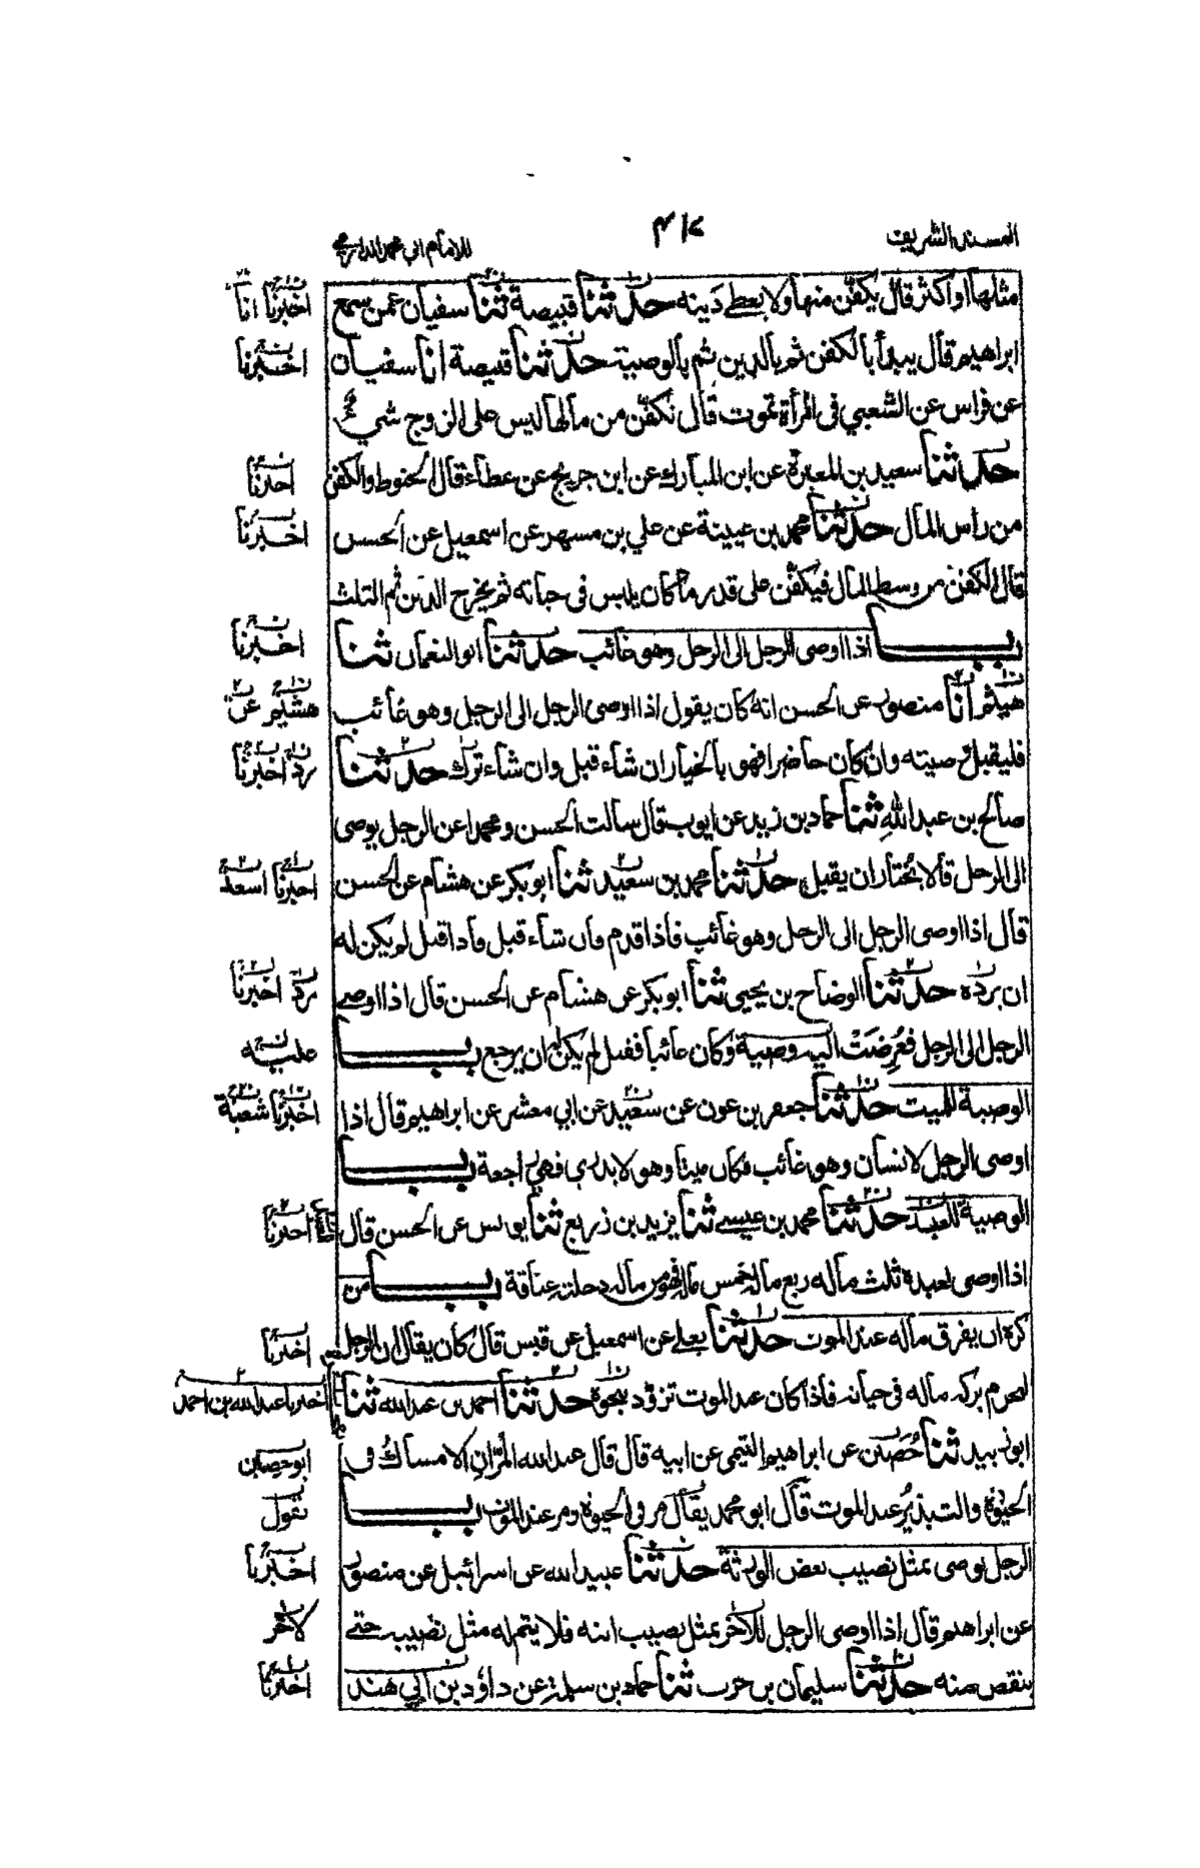 المسند الشريف
٤١٧
للامام ابي محمد الدارمي
مثلها او اكثر قال يكفن منها ولا يعطى دينه حدثنا قبيصة ثنا سفيان عمن سمع
اخبرنا انا
ابراهيم قال يبدأ بالكفن ثم بالدين ثم بالوصية حدثنا قبيصة انا سفيان
اخبرنا
عن فراس عن الشعبي فى المرأة تموت قال تكفن من مالها ليس على الزوج شي
حدثنا سعيد بن المغيرة عن ابن المبارك عن ابن جريج عن عطاء قال الحنوط والكفن
اخبرنا
من رأس المال حدثنا محمد بن عيينة عن علي بن مسهر عن اسمعيل عن الحسن
اخبرنا
قال الكفن من وسط المال فيكفن على قدر ما كان يلبس فى حياته ثم يخرج الدين ثم الثلث
باب اذا اوصى الرجل الى الرجل وهو غائب حدثنا ابو النعمان ثنا
اخبرنا
هيثم انا منصور عن الحسن انه كان يقول اذا اوصى الرجل الى الرجل وهو غائب
هشيم عن
فليقبل وصيته وان كان حاضرا فهو بالخيار ان شاء قبل وان شاء ترك حدثنا
ردّ اخبرنا
صالح بن عبد اللهِ ثنا حماد بن زيد عن ايوب قال سالت الحسن و محمدا عن الرجل يوصى
الى الرجل قالا يُختار ان يقبل حدثنا محمد بن سعيد ثنا ابو بكر عن هشام عن الحسن
اخبرنا اسعد
قال اذا اوصى الرجل الى الرجل وهو غائب فاذا قدم فان شاء قبل فاذا قبل لم يكن له
ان يرده حدثنا الوضاح بن يحيى ثنا ابو بكر عن هشام عن الحسن قال اذا اوصى
ردّ اخبرنا
الرجل الى الرجل فعُرِضَتْ اليه وصية وكان غائبا فقبل لم يكن له ان يرجع باب
عليه
الوصية للميت حدثنا جعفر بن عون عن سعيد عن ابي معشر عن ابراهيم قال اذا
اخبرنا شعبة
اوصى الرجل لانسان وهو غائب فكان ميتا وهو لا يدرى فهي راجعة باب
الوصية للعبد حدثنا محمد بن عيسى ثنا يزيد بن زريع ثنا يونس عن الحسن قال
اخبرنا
اذا اوصى لعبده ثلث ماله ربع ماله خمس ماله فهو من ماله دخلته عتاقة باب من
كره ان يفرق ماله عند الموت حدثنا يعلى عن اسمعيل عن قيس قال كان يقال ان الرجل
اخبرنا
ليحرم بركة ماله فى حياته فاذا كان عند الموت تزود بفجرة حدثنا احمد بن عبد الله ثنا
اخبرنا عبد الله بن احمد
ابو زبيد ثنا حُصَين عن ابراهيم التيمى عن ابيه قال قال عبد الله المُرَّانِ الامساكُ فى
ابو حصين
الحيٰوة والتبذيرُ عند الموت قال ابو محمد يقال مر فى الحيوة ومر عند الموت باب
نقول
الرجل يوصى بمثل نصيب بعض الورثة حدثنا عبيد الله عن اسرائيل عن منصور
اخبرنا
عن ابراهيم قال اذا اوصى الرجل للآخر بمثل نصيب ابنه فلا يتم له مثل نصيبه حتى
لآخر
ينقص منه حدثنا سليمان بن حرب ثنا حماد بن سلمة عن داؤد بن ابي هند
اخبرنا